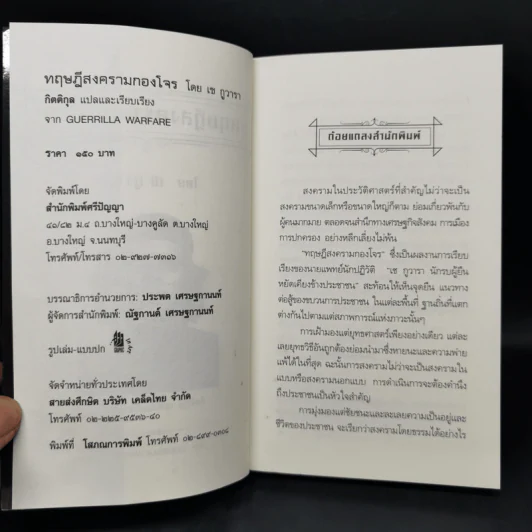 ทฤษฎีสงครามกองโจร โดย เช กูวารา
กิตติกุล แปลและเรียบเรียง
จาก GUERRILLA WARFARE
ราคา ๑๕๐ บาท
จัดพิมพ์โดย
สำนักพิมพ์ศรีปัญญา
๔๐/๔๒ ม.๔ ถ.บางใหญ่-บางคูลัด ต.บางใหญ่
อ.บางใหญ่ จ.นนทบุรี
โทรศัพท์/โทรสาร ๐๒-๙๒๗-๗๓๑๖
บรรณาธิการอำนวยการ: ประพต เศรษฐกานนท์
ผู้จัดการสำนักพิมพ์: ณัฐกานต์ เศรษฐกานนท์
รูปเล่ม-แบบปก
จัดจำหน่ายทั่วประเทศโดย
สายส่งศึกษิต บริษัท เคล็ดไทย จำกัด
โทรศัพท์ ๐๒-๒๒๕-๙๕๓๖-๔๐
พิมพ์ที่ โสภณการพิมพ์ โทรศัพท์ ๐๒-๔๙๙-๐๓๐๘
ถ้อยแถลงสำนักพิมพ์
สงครามในประวัติศาสตร์ที่สำคัญไม่ว่าจะเป็น
สงครามขนาดเล็กหรือขนาดใหญ่ก็ตาม ย่อมเกี่ยวพันกับ
ผู้คนมากมาย ตลอดจนสำนึกทางเศรษฐกิจสังคม การเมือง
การปกครอง อย่างหลีกเลี่ยงไม่พ้น
"ทฤษฎีสงครามกองโจร" ซึ่งเป็นผลงานการเรียบ
เรียงของนายแพทย์นักปฏิวัติ "เช กูวารา นักรบผู้ยืน
หยัดเคียงข้างประชาชน" สะท้อนให้เห็นจุดยืน แนวทาง
ต่อสู้ของขบวนการประชาชน ในแต่ละพื้นที่ ฐานถิ่นที่แตก
ต่างกันไปตามแต่สภาพการณ์แห่งภาวะนั้นๆ
การเฝ้ามองแต่ยุทธศาสตร์เพียงอย่างเดียว แต่ละ
เลยยุทธวิธีอันถูกต้องย่อมนำมาซึ่งหายนะและความพ่าย
แพ้ได้ในที่สุด ฉะนั้นการสงครามไม่ว่าจะเป็นสงครามใน
แบบหรือสงครามนอกแบบ การดำเนินการจะต้องคำนึง
ถึงประชาชนเป็นหัวใจสำคัญ
การมุ่งมองแต่ชัยชนะและละเลยความเป็นอยู่และ
ชีวิตของประชาชน จะเรียกว่าสงครามโดยธรรมได้อย่างไร